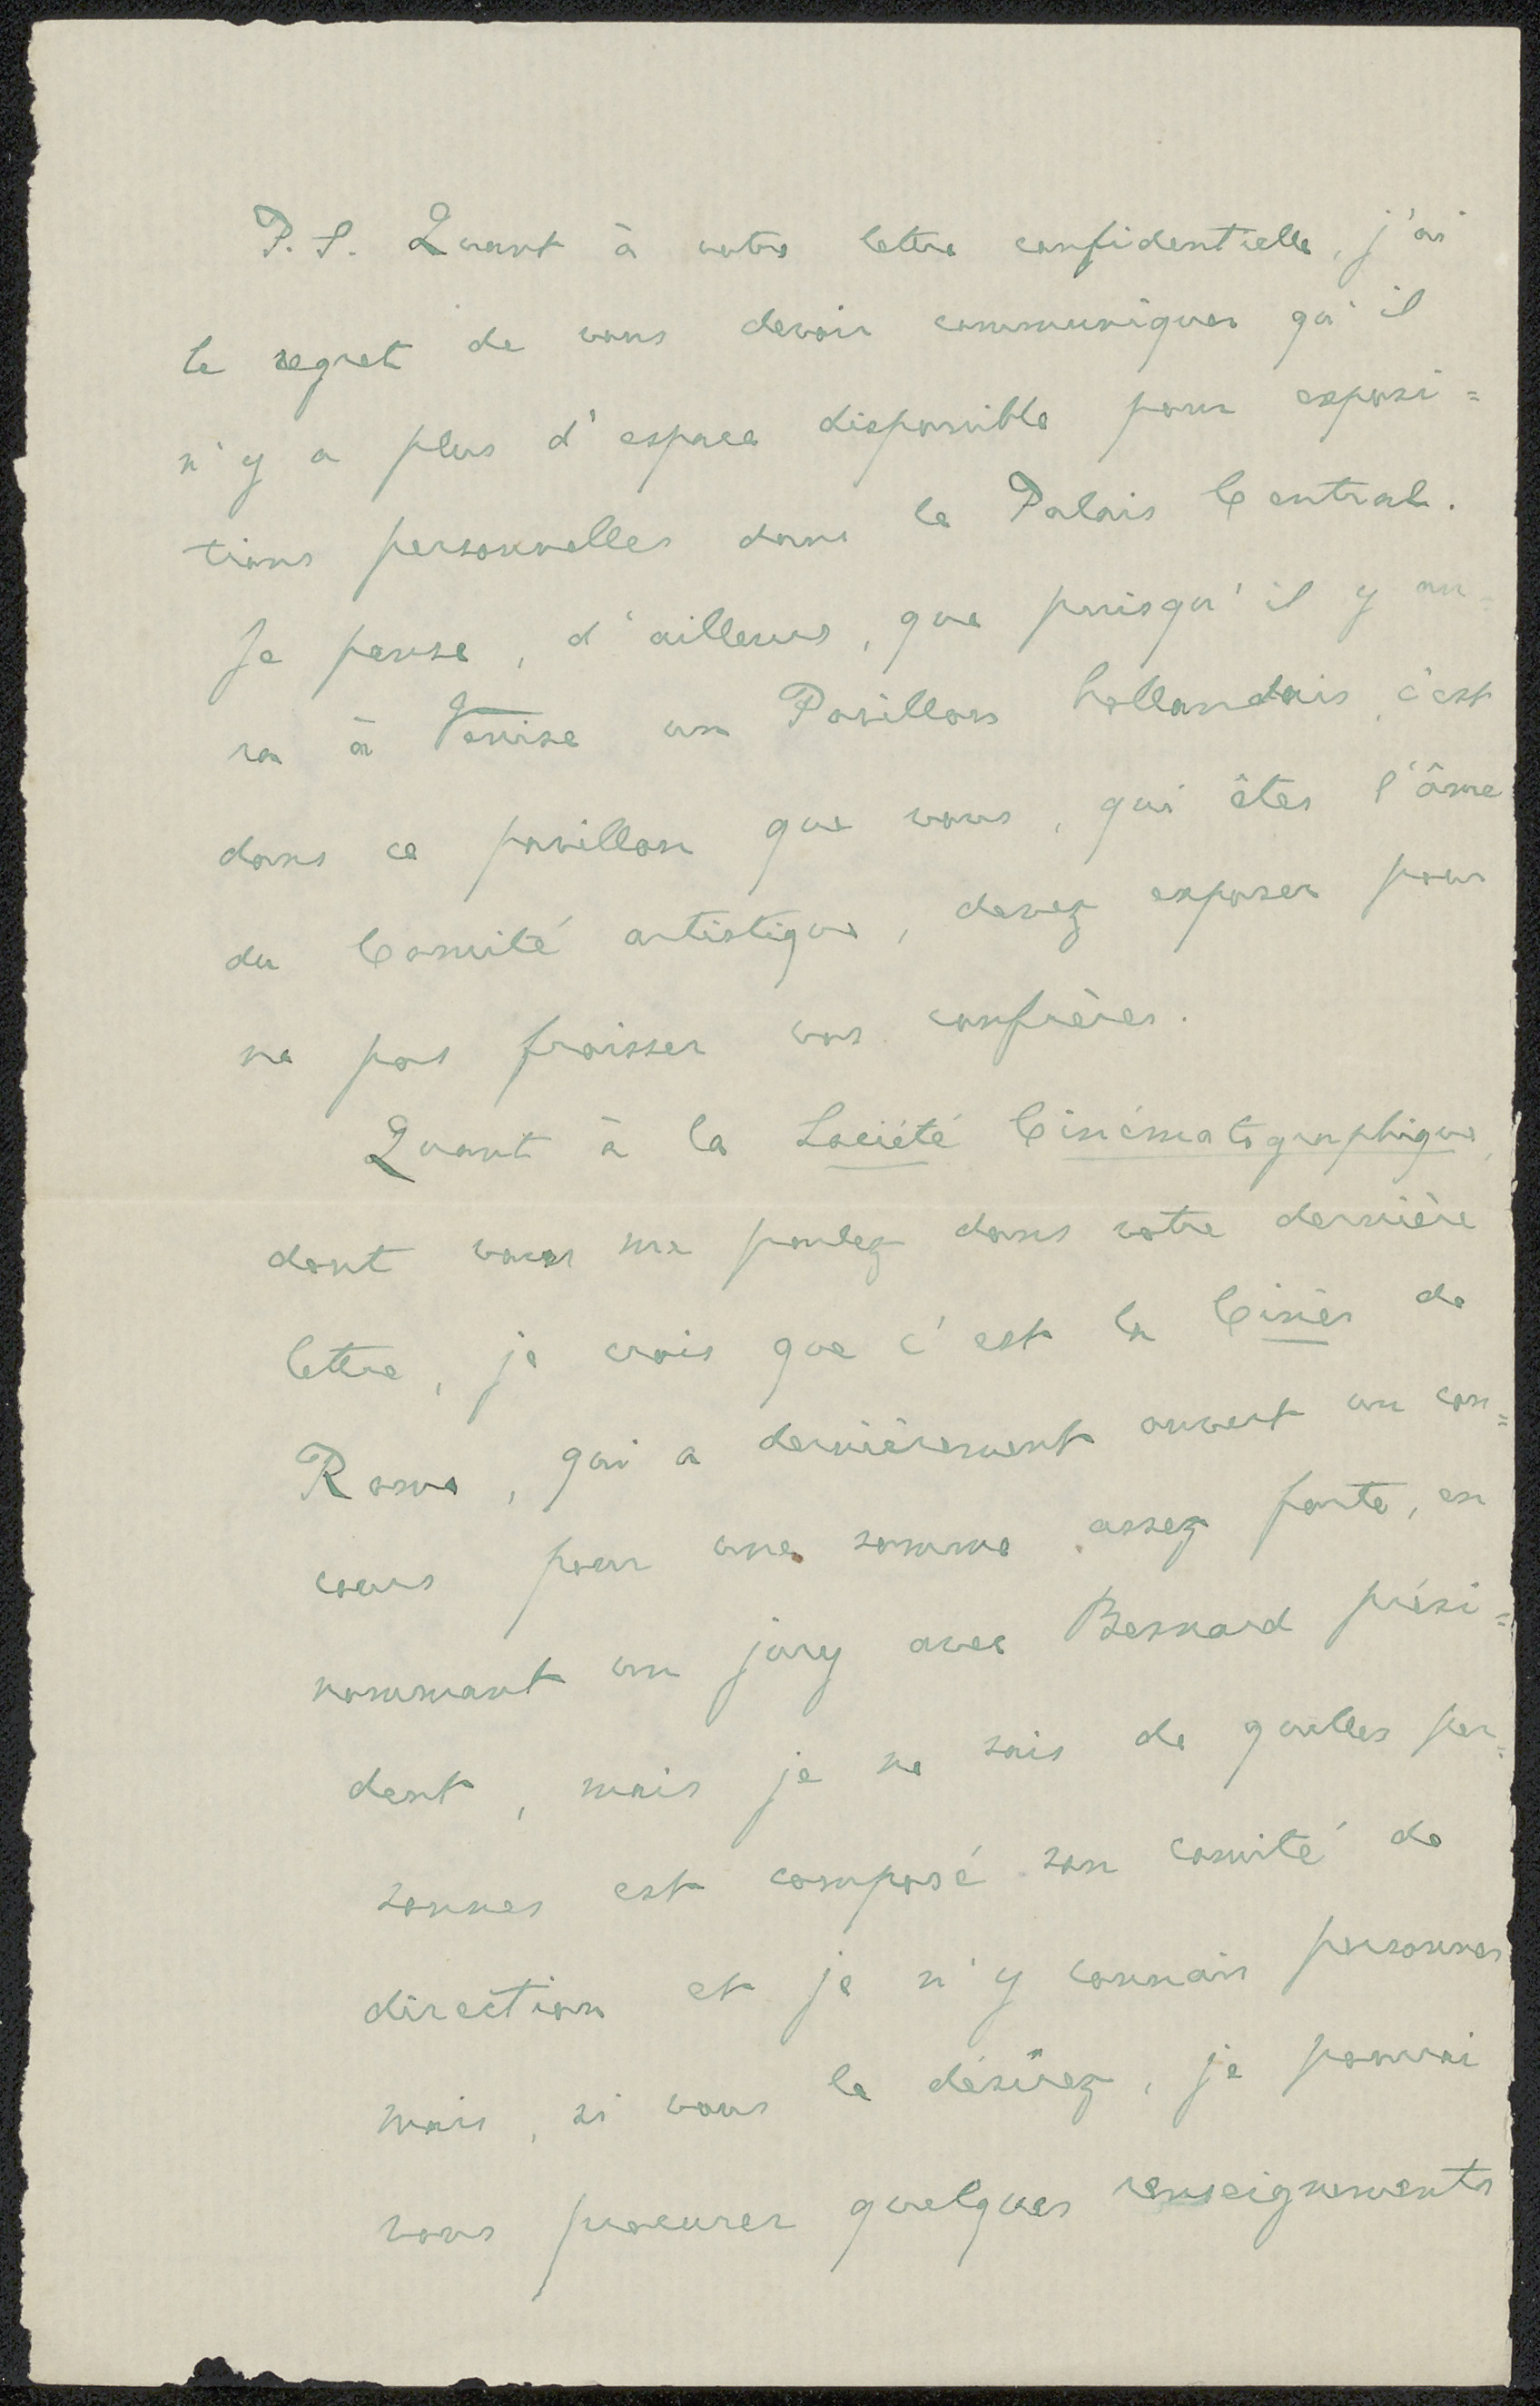 P. S. Quant à votre lettre confidentielle, j'ai
le regret de vous devoir communiquer qu'il
n'y a plus d'espace disponible pour exposi=
tions personnelles dans le Palais Central.
Je pense, d'ailleurs, que puisqu'il y au=
ra à Venise un Pavillon hollandais, c'est
dans ce pavillon que vous, qui êtes l'âme
du Comité artistique, devez exposer pour
ne pas froisser vos confrères.
Quant à la Société Cinématographique,
dont vous me parlez dans votre dernière
lettre, je crois que c'est la Cinès de
Rome, qui a dernièrement ouvert un con=
cours pour une somme assez forte, en
nommant un jury avec Besnard prési=
dent, mais je ne sais de quelles per=
sonnes est composé son comité de
direction et je n'y connais personne
mais, si vous le désirez, je pourrai
vous procurer quelques renseignements